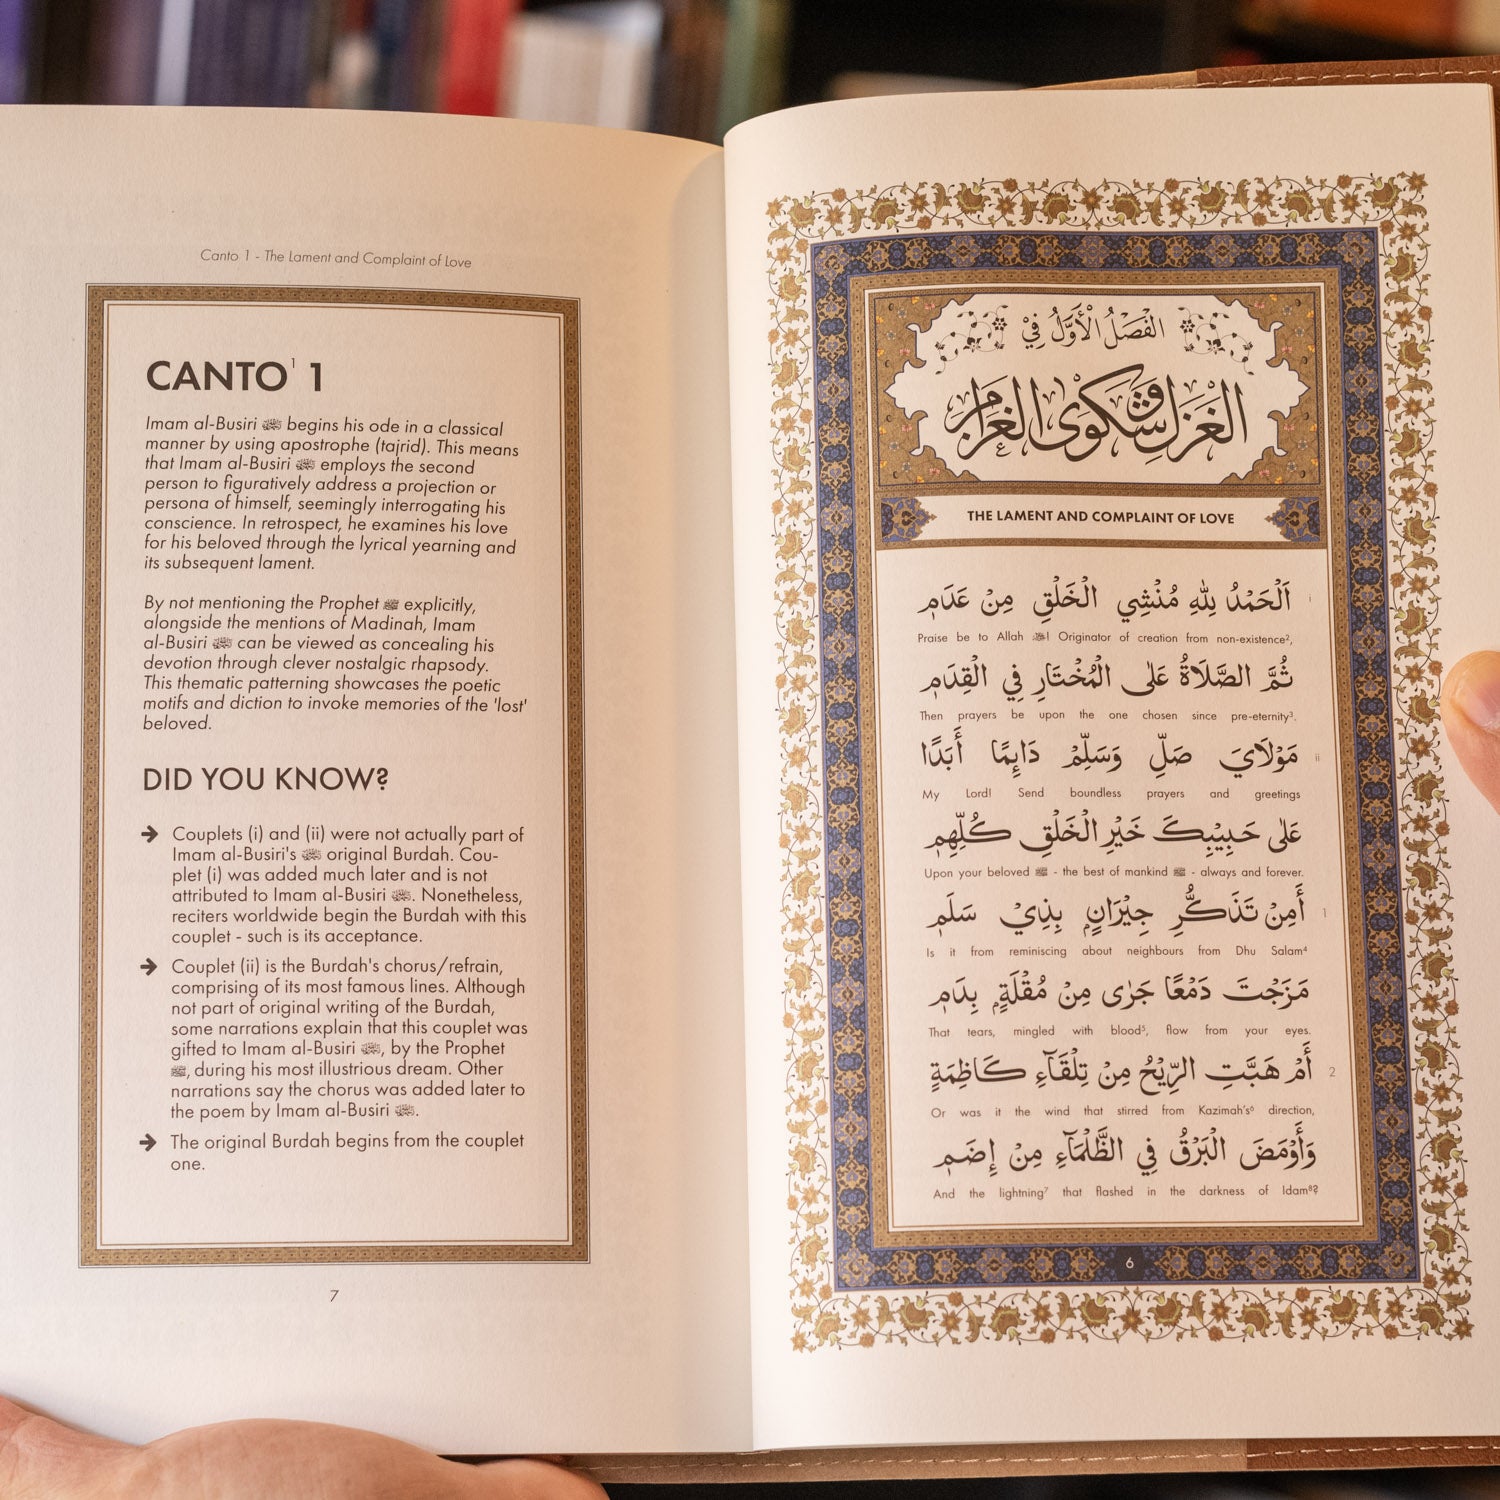 Canto 1 - The Lament and Complaint of Love
CANTO¹ 1
Imam al-Busiri begins his ode in a classical
manner by using apostrophe (tajrid). This means
that Imam al-Busiri employs the second
person to figuratively address a projection or
persona of himself, seemingly interrogating his
conscience. In retrospect, he examines his love
for his beloved through the lyrical yearning and
its subsequent lament.
By not mentioning the Prophet ﷺ explicitly,
alongside the mentions of Madinah, Imam
al-Busiri can be viewed as concealing his
devotion through clever nostalgic rhapsody.
This thematic patterning showcases the poetic
motifs and diction to invoke memories of the 'lost'
beloved.
DID YOU KNOW?
➔ Couplets (i) and (ii) were not actually part of
Imam al-Busiri's original Burdah. Cou-
plet (i) was added much later and is not
attributed to Imam al-Busiri . Nonetheless,
reciters worldwide begin the Burdah with this
couplet - such is its acceptance.
➔ Couplet (ii) is the Burdah's chorus/refrain,
comprising of its most famous lines. Although
not part of original writing of the Burdah,
some narrations explain that this couplet was
gifted to Imam al-Busiri , by the Prophet
ﷺ, during his most illustrious dream. Other
narrations say the chorus was added later to
the poem by Imam al-Busiri .
➔ The original Burdah begins from the couplet
one.
7
الفَصْلُ الْأَوَّلُ فِي
الغَزَلِ وَشَكْوَى الغَرَامِ
THE LAMENT AND COMPLAINT OF LOVE
اَلْحَمْدُ لِلّٰهِ مُنْشِي الْخَلْقِ مِنْ عَدَمِ i
Praise be to Allah ! Originator of creation from non-existence²,
ثُمَّ الصَّلَاةُ عَلَى الْمُخْتَارِ فِي الْقِدَمِ
Then prayers be upon the one chosen since pre-eternity³.
مَوْلَايَ صَلِّ وَسَلِّمْ دَائِمًا أَبَدًا ii
My Lord! Send boundless prayers and greetings
عَلَى حَبِيْبِكَ خَيْرِ الْخَلْقِ كُلِّهِمِ
Upon your beloved ﷺ - the best of mankind ﷺ - always and forever.
أَمِنْ تَذَكُّرِ جِيْرَانٍ بِذِيْ سَلَمِ 1
Is it from reminiscing about neighbours from Dhu Salam⁴
مَزَجْتَ دَمْعًا جَرٰى مِنْ مُقْلَةٍ بِدَمِ
That tears, mingled with blood⁵, flow from your eyes.
أَمْ هَبَّتِ الرِّيْحُ مِنْ تِلْقَآءِ كَاظِمَةٍ 2
Or was it the wind that stirred from Kazimah's⁶ direction,
وَأَوْمَضَ الْبَرْقُ فِي الظَّلْمَآءِ مِنْ إِضَمِ
And the lightning⁷ that flashed in the darkness of Idam⁸?
6